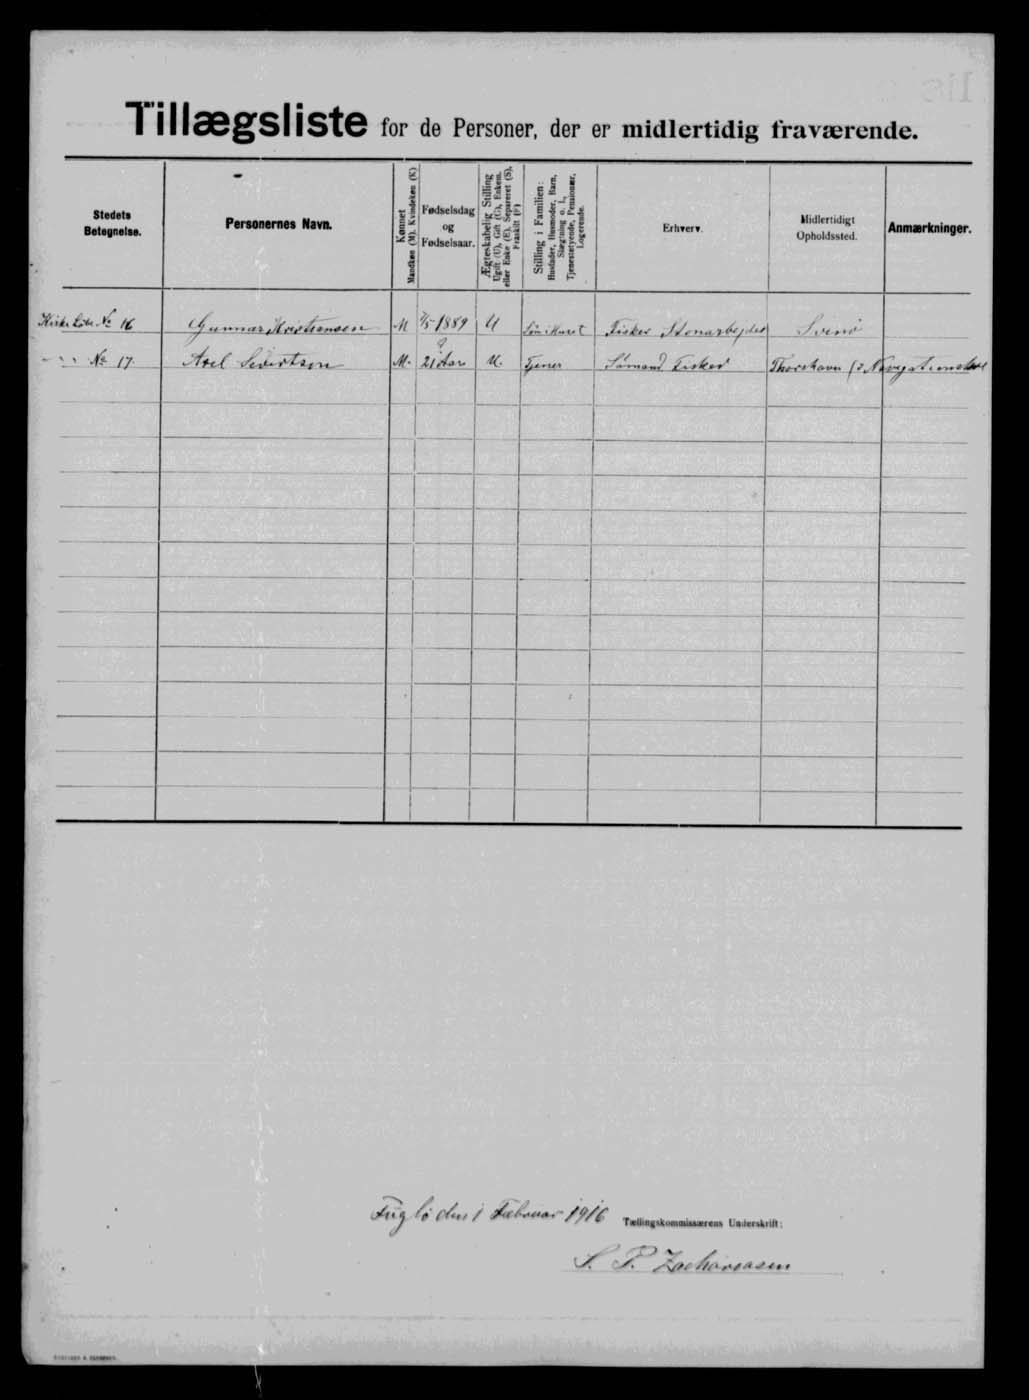 Tillægsliste for de Personer, der er midlertidig fraværende.
Stedets Betegnelse.
Personernes Navn.
Kønnet
Mandkøn (M). Kvindekøn (K)
Fødselsdag
og
Fødselsaar.
Ægteskabelig Stilling
Ugift (U), Gift (G), Enkem.
eller Enke (E), Separeret (S),
Fraskilt (F)
Stilling i Familien:
Husfader, Husmoder, Barn,
Slægtning o. l.,
Tjenestetyende, Pensionær,
Logerende.
Erhverv.
Midlertidigt
Opholdssted.
Anmærkninger.
No 16 Gunnar Kristiansen M 1889 U Søn Huset Fisker Svinø
" " No 17. Axel Sivertsen M. 21 Aar U. Tjener Sømand Fisker Thorshavn (
Fuglø den 1 Februar 1916 Tællingskommissærens Underskrift:
S. P. Zachariasen